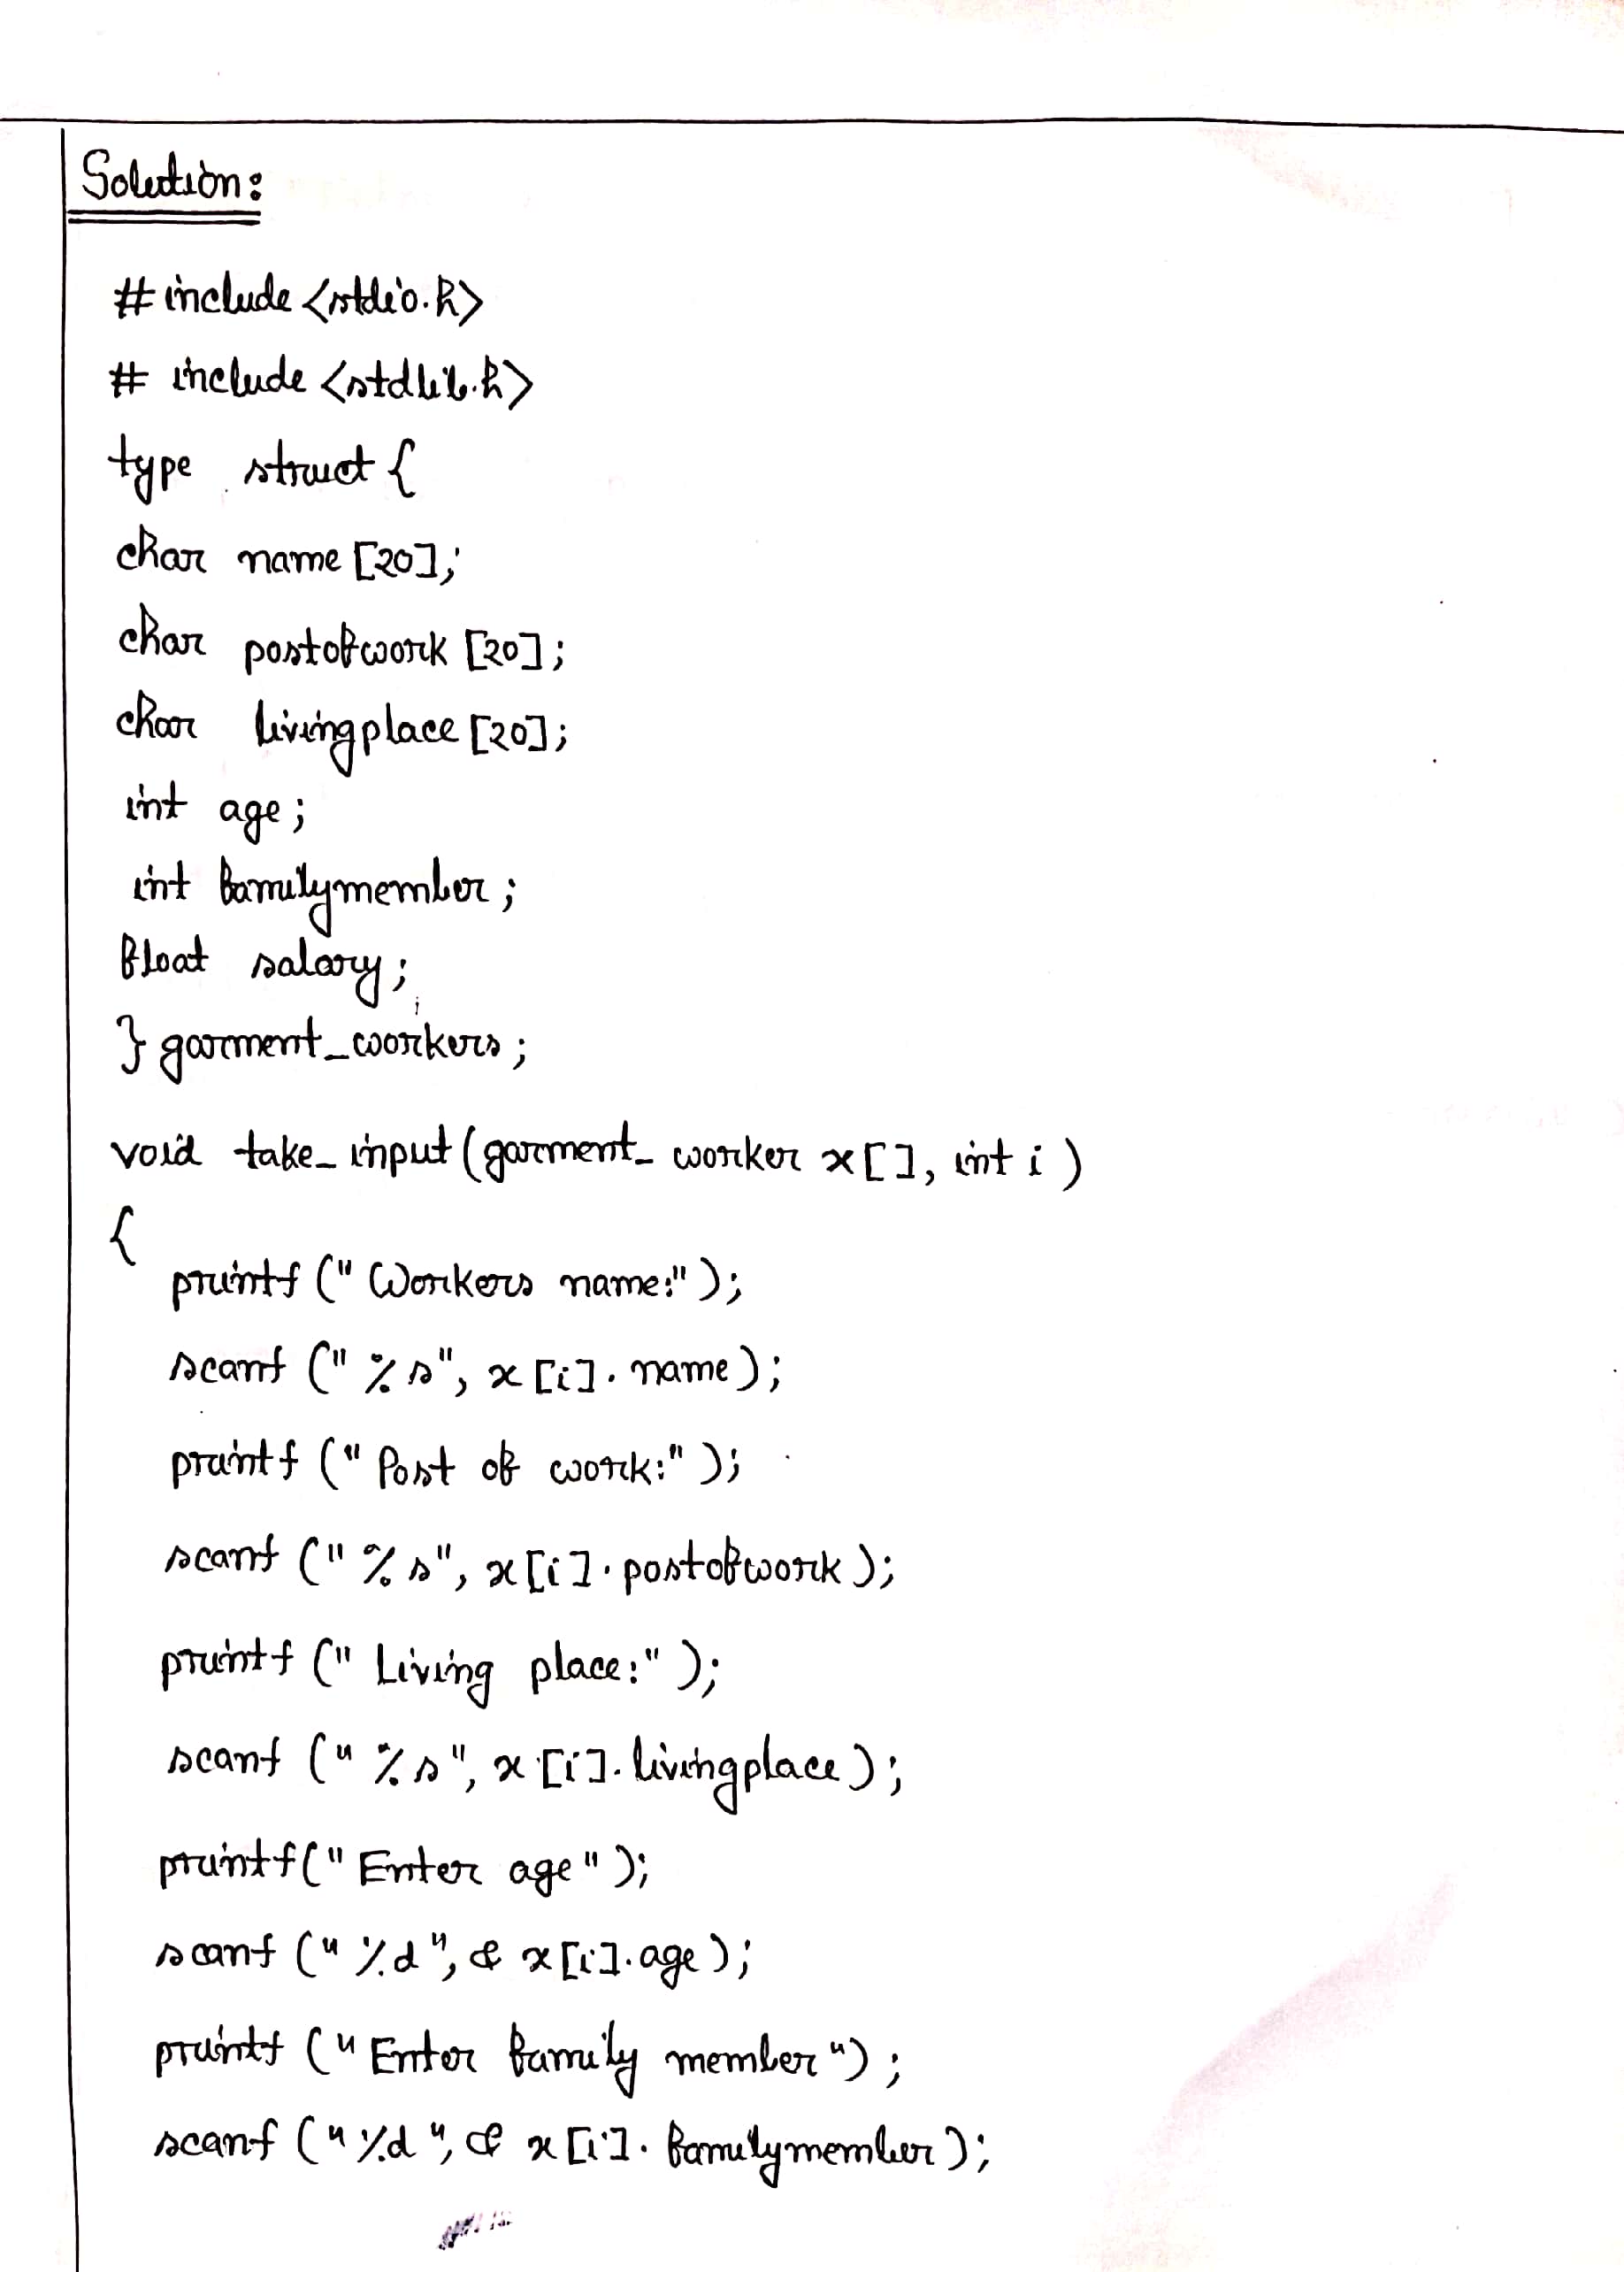 Solution:
#include <stdio.h>
# include <stdlib.h>
type struct {
char name [20];
char postofwork [20];
char livingplace [20];
int age;
int familymember;
float salary;
} garment_workers;
void take_input (garment_ worker x[], int i)
{
printf (" Workers name:");
scanf (" %s", x [i]. name);
printf (" Post of work:");
scanf (" %s", x[i].postofwork);
printf (" Living place:");
scanf (" %s", x [i]. livingplace);
printf (" Enter age ");
scanf (" %d ", & x[i].age);
printf (" Enter family member ");
scanf (" %d ", & x [i]. familymember);